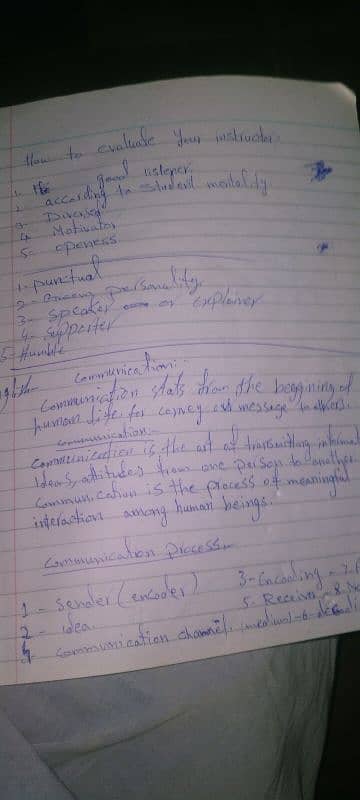 How to evaluate your instructor.
1. He good listener.
2. according to student mentaldy
3. Diversed
4. Motivator
5. openess
1. punctual
2- personality
3- Speaker or explainer
4- Supporter
5- Humble
Communication:-
Communication stats from the beggining of
human life for convey our message to others.
communication:-
Communication is the art of transmitting informat
Ideas, attitudes from one person to another.
Communication is the process of meaningful
interaction among human beings.
Communication process:-
1 - Sender (encoder) 3- Encoding - 7.
2 - idea 5. Receiver - 8.
4 - Communication channel (medium) - 6-